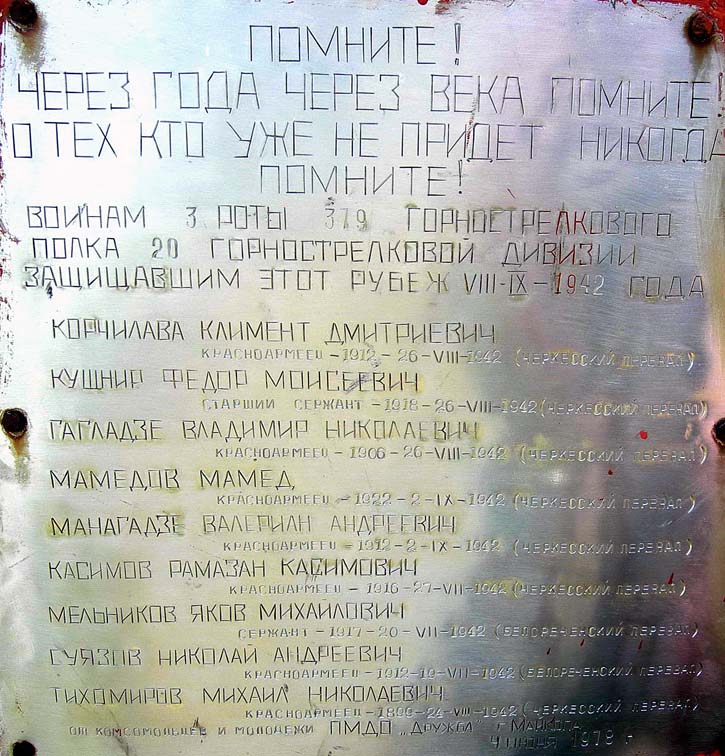 ПОМНИТЕ!
ЧЕРЕЗ ГОДА ЧЕРЕЗ ВЕКА ПОМНИТЕ
О ТЕХ КТО УЖЕ НЕ ПРИДЕТ НИКОГДА
ПОМНИТЕ!
ВОИНАМ 3 РОТЫ 379 ГОРНОСТРЕЛКОВОГО
ПОЛКА 20 ГОРНОСТРЕЛКОВОЙ ДИВИЗИИ
ЗАЩИЩАВШИМ ЭТОТ РУБЕЖ VIII-IX-1942 ГОДА
КОРЧИЛАВА КЛИМЕНТ ДМИТРИЕВИЧ
КРАСНОАРМЕЕЦ - 1912 - 26-VIII-1942 (ЧЕРКЕССКИЙ ПЕРЕВАЛ)
КУШНИР ФЕДОР МОИСЕЕВИЧ
СТАРШИЙ СЕРЖАНТ - 1918 - 26-VIII-1942 (ЧЕРКЕССКИЙ ПЕРЕВАЛ)
ГАГЛАДЗЕ ВЛАДИМИР НИКОЛАЕВИЧ
КРАСНОАРМЕЕЦ - 1906 - 26-VIII-1942 (ЧЕРКЕССКИЙ ПЕРЕВАЛ)
МАМЕДОВ МАМЕД
КРАСНОАРМЕЕЦ - 1922 - 2-IX-1942 (ЧЕРКЕССКИЙ ПЕРЕВАЛ)
МАНАГАДЗЕ ВАЛЕРИАН АНДРЕЕВИЧ
КРАСНОАРМЕЕЦ - 1912 - 2-IX-1942 (ЧЕРКЕССКИЙ ПЕРЕВАЛ)
КАСИМОВ РАМАЗАН КАСИМОВИЧ
КРАСНОАРМЕЕЦ - 1916 - 27-VIII-1942 (ЧЕРКЕССКИЙ ПЕРЕВАЛ)
МЕЛЬНИКОВ ЯКОВ МИХАЙЛОВИЧ
СЕРЖАНТ - 1917 - 20-VII-1942 (БЕЛОРЕЧЕНСКИЙ ПЕРЕВАЛ)
СУЯЗОВ НИКОЛАЙ АНДРЕЕВИЧ
КРАСНОАРМЕЕЦ - 1912 - 19-VII-1942 (БЕЛОРЕЧЕНСКИЙ ПЕРЕВАЛ)
ТИХОМИРОВ МИХАИЛ НИКОЛАЕВИЧ
КРАСНОАРМЕЕЦ - 1899 - 24-VIII-1942 (ЧЕРКЕССКИЙ ПЕРЕВАЛ)
ОТ КОМСОМОЛЬЦЕВ И МОЛОДЕЖИ ПМДО "ДРУЖБА" г МАЙКОПА
4 ИЮНЯ 1978 г